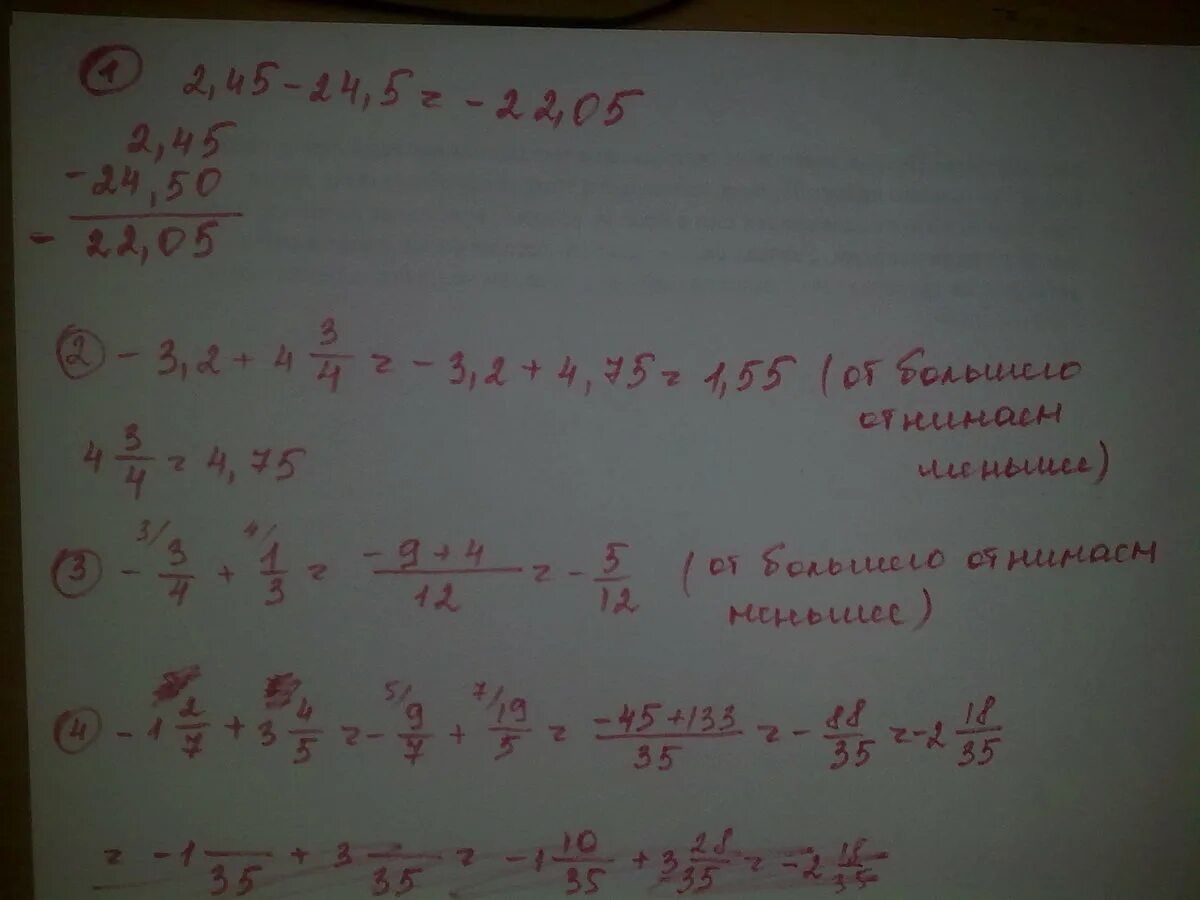 1 2,45 - 24,5 = - 22,05
2,45
- 24,50
- 22,05
2 - 3,2 + 4 3/4 = - 3,2 + 4,75 = 1,55 (от большего
отнинаем
меньшее)
4 3/4 = 4,75
3 - 3/4 + 1/3 = (-9+4)/12 = - 5/12 (от большего отнинаем
меньшее)
4 - 1 2/7 + 3 4/5 = - 9/7 + 19/5 = (-45+133)/35 = - 88/35 = -2 18/35
= -1 /35 + 3 /35 = -1 10/35 + 3 28/35 = -2 18/35